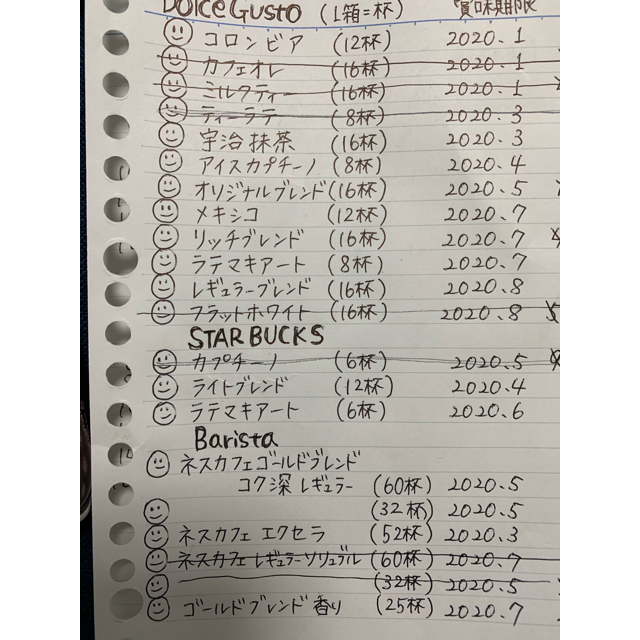 DOLCE GUSTO (1箱=杯) 賞味期限
コロンビア (12杯) 2020.1
カフェオレ (16杯) 2020.1
ミルクティー (16杯) 2020.1
ティーラテ (8杯) 2020.3
宇治抹茶 (16杯) 2020.3
アイスカプチーノ (8杯) 2020.4
オリジナルブレンド (16杯) 2020.5
メキシコ (12杯) 2020.7
リッチブレンド (16杯) 2020.7
ラテマキアート (8杯) 2020.7
レギュラーブレンド (16杯) 2020.8
フラットホワイト (16杯) 2020.8
STARBUCKS
カプチーノ (6杯) 2020.5
ライトブレンド (12杯) 2020.4
ラテマキアート (6杯) 2020.6
Barista
ネスカフェゴールドブレンド
コク深レギュラー (60杯) 2020.5
(32杯) 2020.5
ネスカフェ エクセラ (52杯) 2020.3
ネスカフェ レギュラーソリュブル (60杯) 2020.7
(32杯) 2020.5
ゴールドブレンド香り (25杯) 2020.7